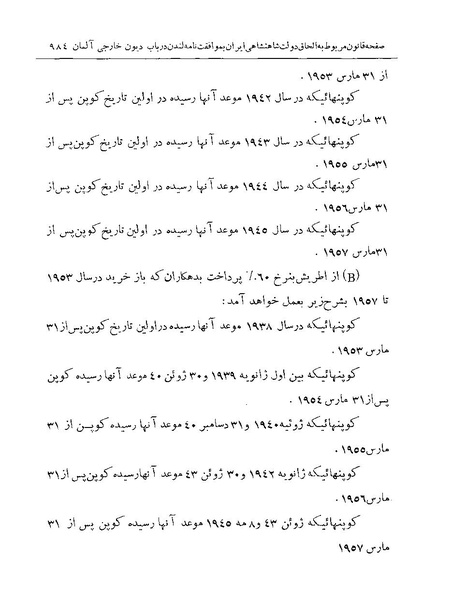 صفحه قانون مربوط به الحاق دولت شاهنشاهی ایران بموافقت نامه لندن در باب دیون خارجی آلمان ۹۸٤
از ۳۱ مارس ۱۹۵۳ .
کوپنهائیکه در سال ۱۹٤۲ موعد آنها رسیده در اولین تاریخ کوپن پس از
۳۱ مارس ۱۹۵٤ .
کوپنهائیکه در سال ۱۹٤۳ موعد آنها رسیده در اولین تاریخ کوپن پس از
۳۱ مارس ۱۹۵۵ .
کوپنهائیکه در سال ۱۹٤٤ موعد آنها رسیده در اولین تاریخ کوپن پس از
۳۱ مارس ۱۹۵٦ .
کوپنهائیکه در سال ۱۹٤۵ موعد آنها رسیده در اولین تاریخ کوپن پس از
۳۱ مارس ۱۹۵۷ .
(B) از اطریش بنرخ ٦۰٪ پرداخت بدهکاران که باز خرید در سال ۱۹۵۳
تا ۱۹۵۷ بشرح زیر بعمل خواهد آمد :
کوپنهائیکه در سال ۱۹۳۸ موعد آنها رسیده در اولین تاریخ کوپن پس از ۳۱
مارس ۱۹۵۳ .
کوپنهائیکه بین اول ژانویه ۱۹۳۹ و ۳۰ ژوئن ٤۰ موعد آنها رسیده کوپن
پس از ۳۱ مارس ۱۹۵٤ .
کوپنهائیکه ژوئیه ۱۹٤۰ و ۳۱ دسامبر ٤۰ موعد آنها رسیده کوپن از ۳۱
مارس ۱۹۵۵ .
کوپنهائیکه ژانویه ۱۹٤۲ و ۳۰ ژوئن ٤۳ موعد آنها رسیده کوپن پس از ۳۱
مارس ۱۹۵٦ .
کوپنهائیکه ژوئن ٤۳ و ۸ مه ۱۹٤۵ موعد آنها رسیده کوپن پس از ۳۱
مارس ۱۹۵۷